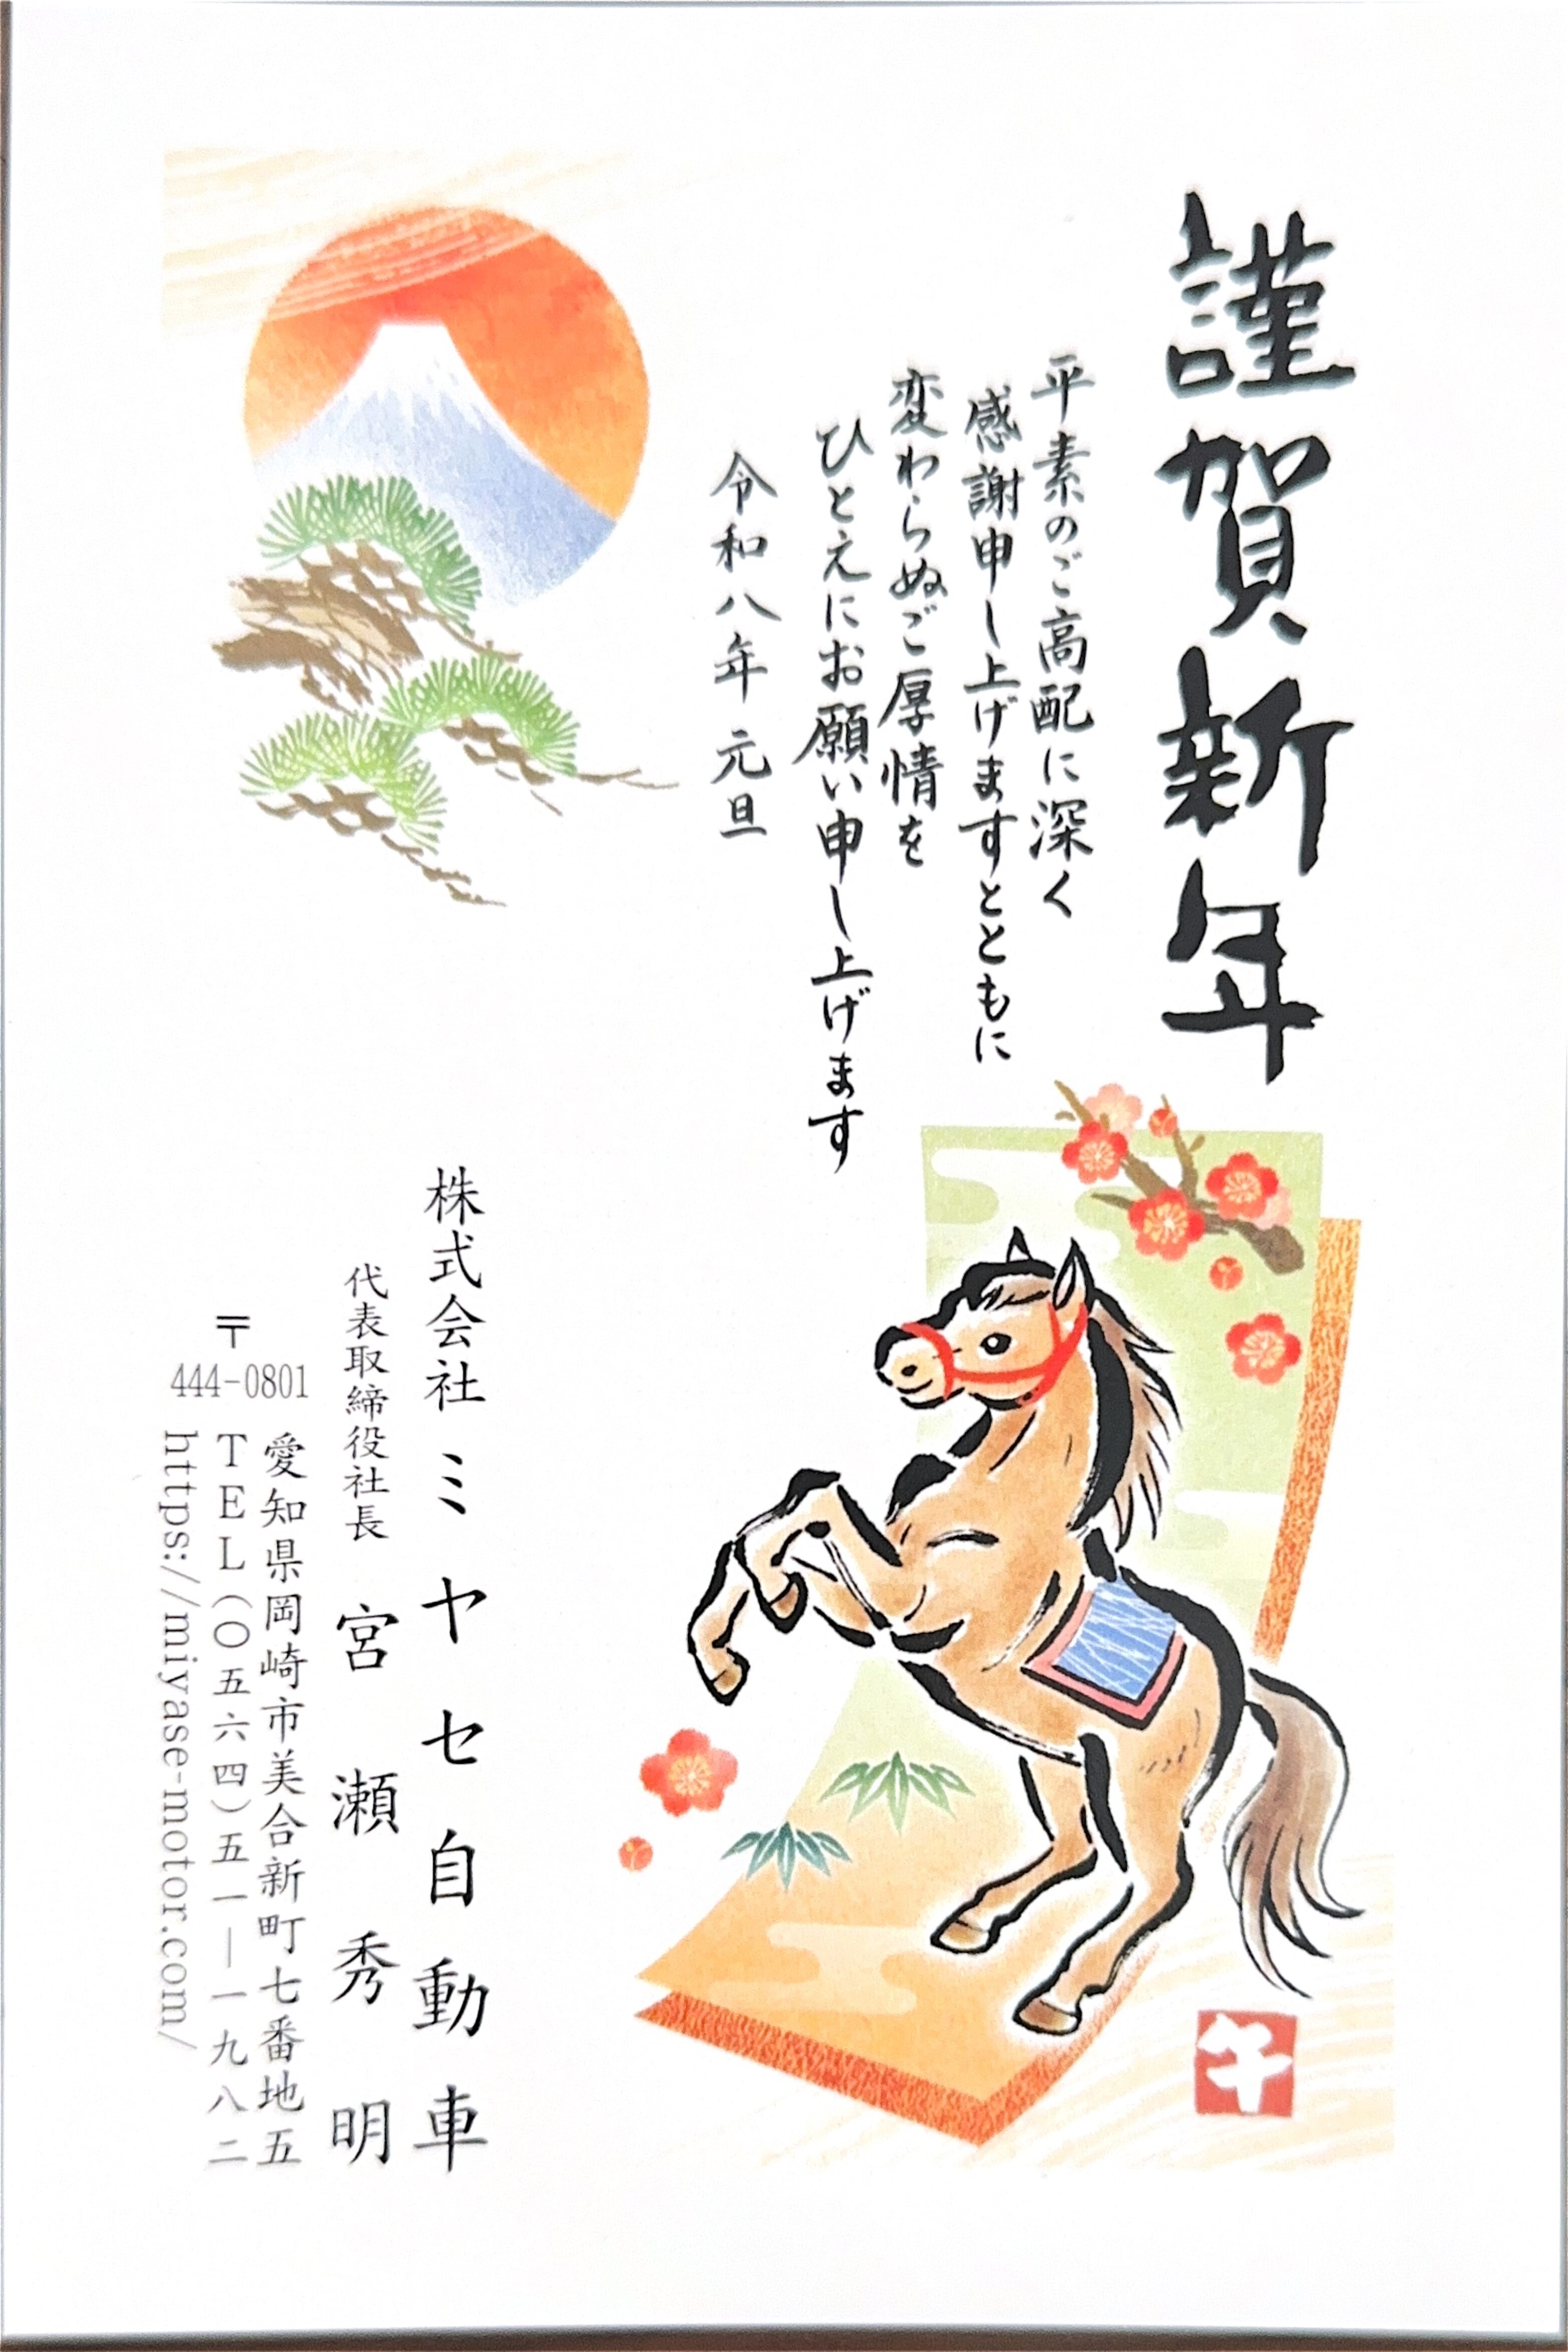 謹賀新年
平素のご高配に深く
感謝申し上げますとともに
変わらぬご厚情を
ひとえにお願い申し上げます
令和八年 元旦
午
株式会社ミヤセ自動車
代表取締役社長 宮瀬秀明
〒444-0801
愛知県岡崎市美合新町七番地五
TEL(〇五六四)五一―一九八二
https://miyase-motor.com/